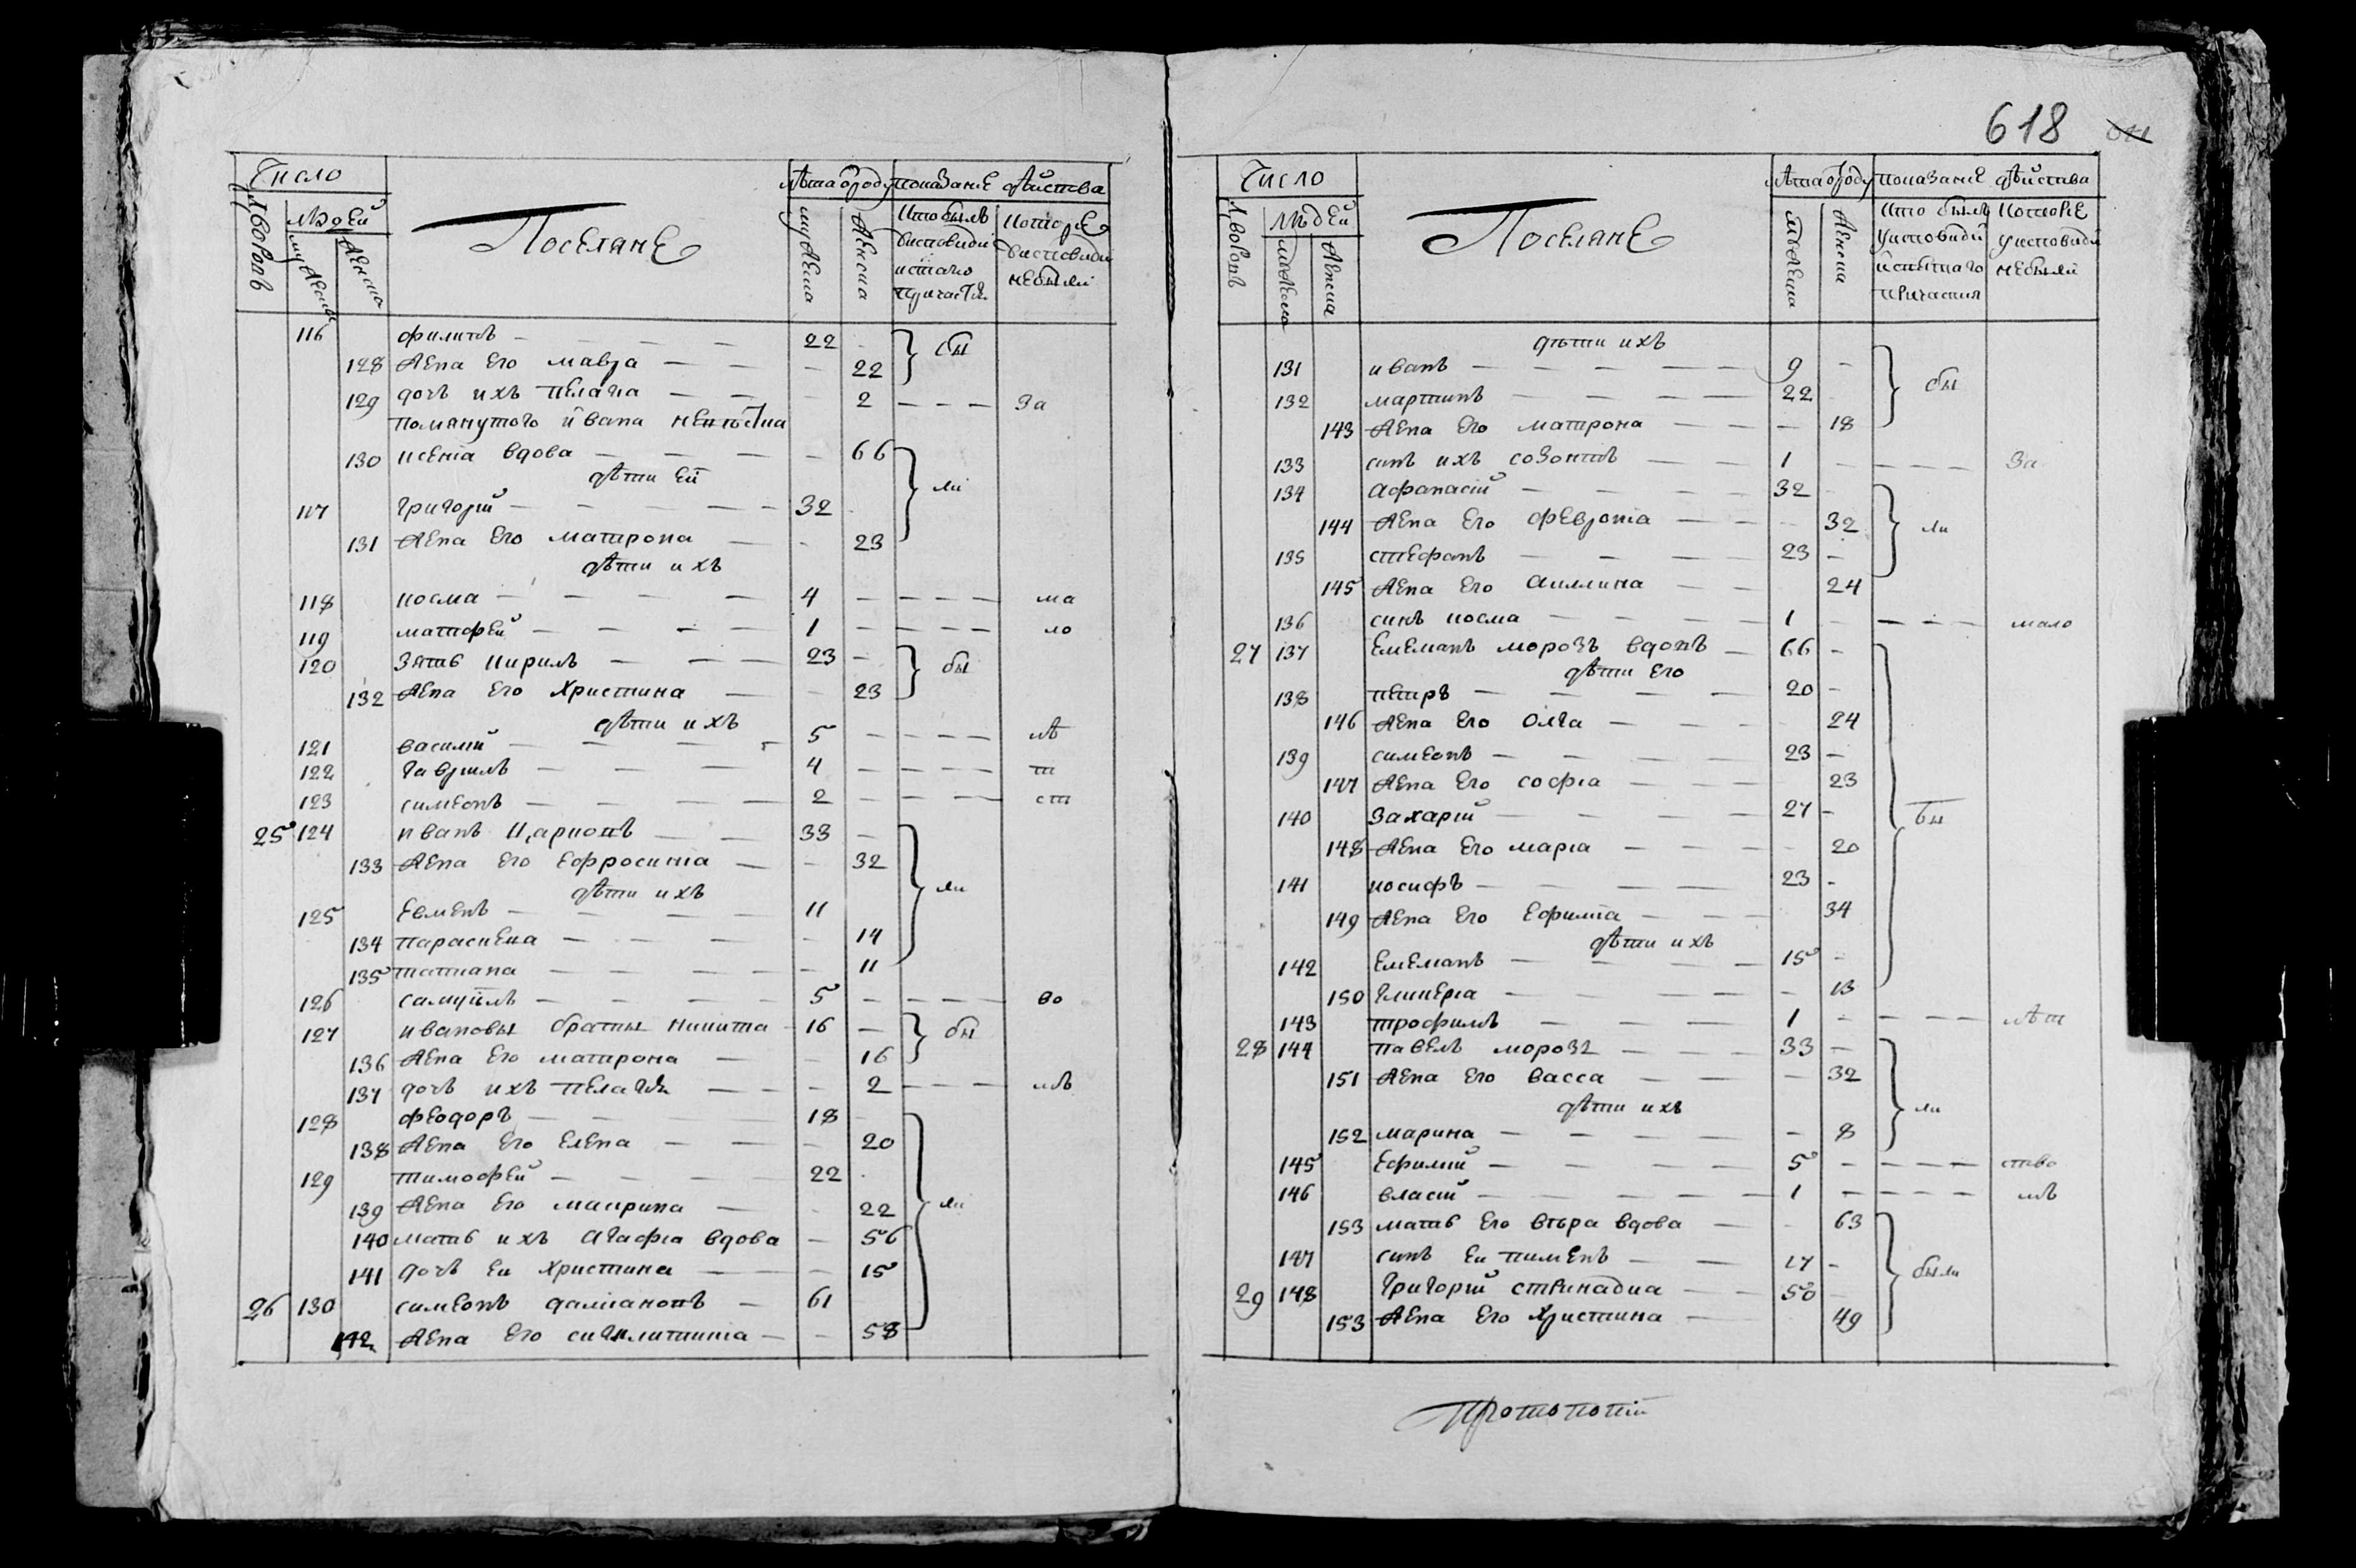 Число
Поселяне
лѣта ѿ роду
показание дѣйства
дворовъ
людей
мужеска
женска
мужеска
женска
кто былъ
висповиди
и стаго
причастїя
которе
висповиди
небыли
116 филипъ — 22
128 жена его мавра — 22 } бы
129 дочь ихъ пелагиа — 2 — за
помянутого ивана
130 ксенїа вдова — 66
дѣти ей
117 григорїй — 32 } ли
131 жена его матрона — 23
дѣти ихъ
118 косма — 4 — ма
119 матфей — 1 — ло
120 зять кирилъ — 23 } бы
132 жена его христина — 23
дѣти ихъ
121 василїй — 5 — лѣ
122 гаврилъ — 4 — т
123 симеонъ — 2 — ст
25 124 иванъ
— 33
133 жена его ефросинїа — 32
дѣти ихъ } ли
125 евменъ — 11
134 параскева — 14
135 татиана — 11
126 самуїлъ — 5 — во
127 ивановы браты никита 16 } бы
136 жена его матрона — 16
137 дочь ихъ пелагїя — 2 — мъ
128 феодоръ — 18
138 жена его елена — 20
129 тимофей — 22
139 жена его макрина — 22 } ли
140 мать ихъ агафиа вдова — 56
141 дочь еи христина — 15
26 130 симеонъ дамианопъ — 61
142 жена его сигклитикїа — 58
618
Число
Поселяне
лѣта ѿ роду
показание дѣйства
дворовъ
людей
мужеска
женска
мужеска
женска
кто былъ
уисповиди
и святаго
причастия
которїе
уисповиди
небыли
дѣти ихъ
131 иванъ — 9 — } бы
132 мартинъ — 22
143 жена его матрона — 18
133 синъ ихъ созонтъ — 1 — за
134 афанасїй — 32
144 жена его феврониа — 32 } ли
135 стефанъ — 23 —
145 жена его акилина — 24
136 синъ косма — 1 — мало
27 137 емелианъ морозъ вдовъ — 66 —
дѣти его
138 петръ — 20 —
146 жена его олга — 24
139 симеонъ — 23 —
147 жена его софиа — 23
140 захарїй — 27 — } бы
148 жена его мариа — 20
141 иосифъ — 23 —
149 жена его ефимїа — 34
дѣти ихъ
142 емелианъ — 15 —
150 гликериа — 13
143 трофимъ — 1 — лѣт
28 144 павелъ морозъ — 33 —
151 жена его васса — 32
дѣти ихъ } ли
152 марина — 8
145 ефимїй — 5 — ство
146 власїй — 1 — мъ
153 мать его вѣра вдова — 63
147 синъ еи пименъ — 17 — } были
29 148 григорїй
— 50
153 жена его христина — 49
протопопїи